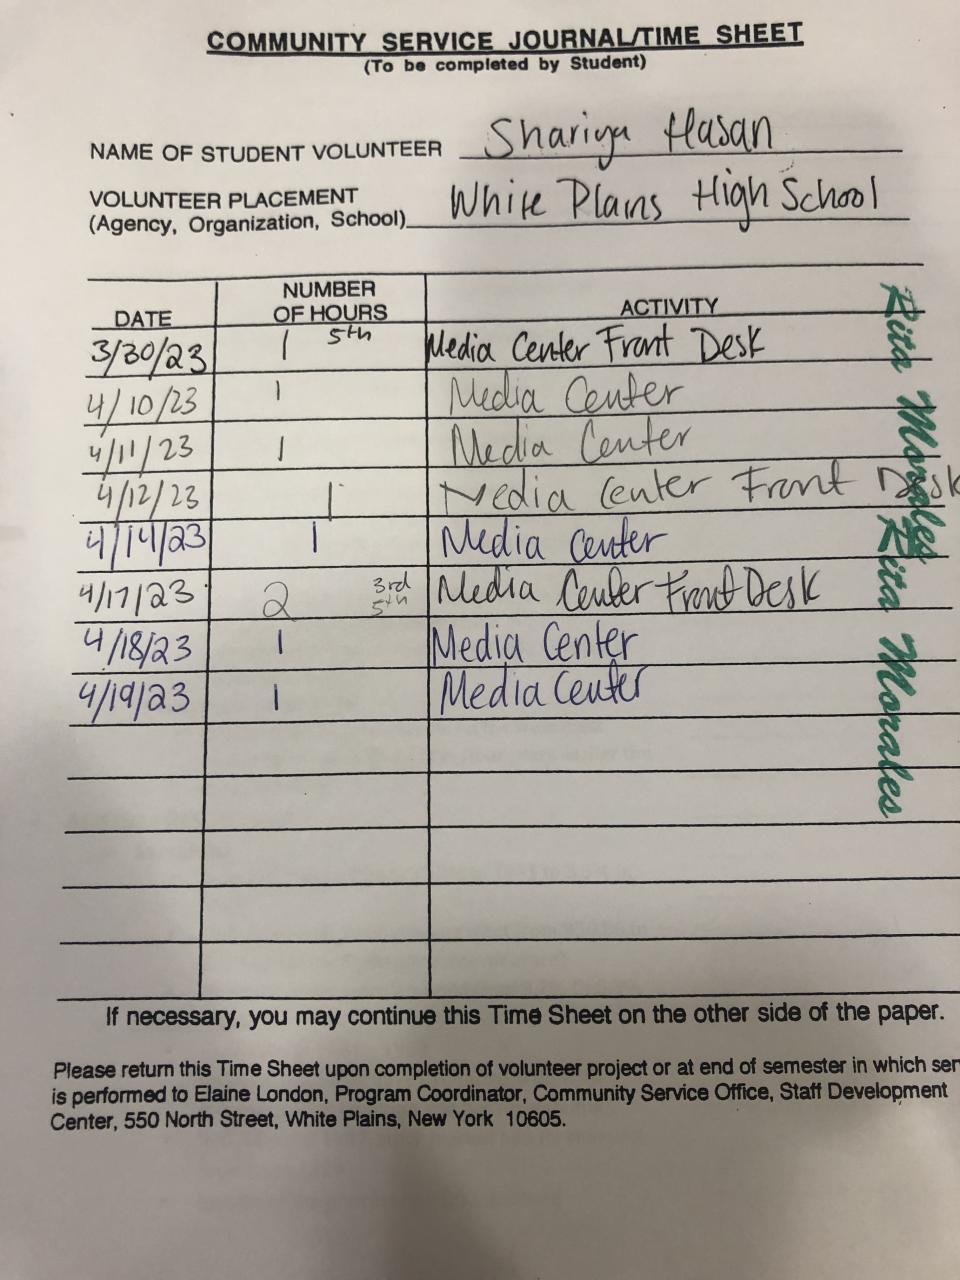 COMMUNITY SERVICE JOURNAL/TIME SHEET
(To be completed by Student)
NAME OF STUDENT VOLUNTEER Shariya Hasan
VOLUNTEER PLACEMENT
(Agency, Organization, School) White Plains High School
DATE NUMBER OF HOURS ACTIVITY
3/30/23 1 5th Media Center Front Desk
4/10/23 1 Media Center
4/11/23 1 Media Center
4/12/23 1 Media Center Front Desk
4/14/23 1 Media Center
4/17/23 2 3rd 5th Media Center Front Desk
4/18/23 1 Media Center
4/19/23 1 Media Center
Rita Morales
Rita Morales
If necessary, you may continue this Time Sheet on the other side of the paper.
Please return this Time Sheet upon completion of volunteer project or at end of semester in which ser
is performed to Elaine London, Program Coordinator, Community Service Office, Staff Development
Center, 550 North Street, White Plains, New York 10605.